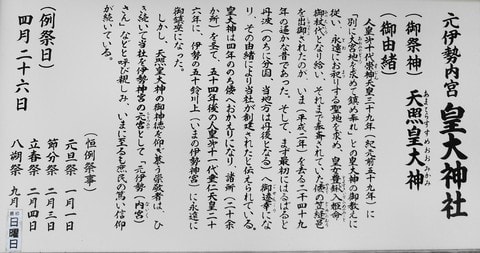 元伊勢内宮 皇大神社
(御祭神) 天照皇大神
あまてらすすめおおみかみ
(御由緒)
人皇第十代崇神天皇三十九年(紀元前五十九年)に
「別に大宮地を求めて鎮め奉れ」との皇大神の御教えに
従い、永遠にお祀りする聖地を求め、皇女豊鋤入姫命
御杖代となり給い、それまで奉斎されていた倭の笠縫邑
を出御されたのが、いま(平成二年)を去る二千四十九
年の遥かな昔であった。そして、まず最初にはるばると
丹波(のちに分国、当地方は丹後となる)へ御遷幸にな
り、その由緒により当社が創建されたと伝えられている。
皇大神は四年ののち倭へおかえりになり、諸所(二十余
か所)を経て、五十四年後の人皇第十一代垂仁天皇二十
六年に、伊勢の五十鈴川上(いまの伊勢神宮)に永遠に
御鎮座になった。
しかし、天照皇大神の御神徳を仰ぎ慕う崇敬者は、ひ
き続いて当社を伊勢神宮の元宮として「元伊勢(内宮)
さん」などと呼び親しみ、いまに至るも庶民の篤い信仰
が続いている。
(例祭日)
四月二十六日
(恒例祭事)
元旦祭 一月一日
節分祭 二月三日
立春祭 二月四日
八朔祭 九月
日曜日